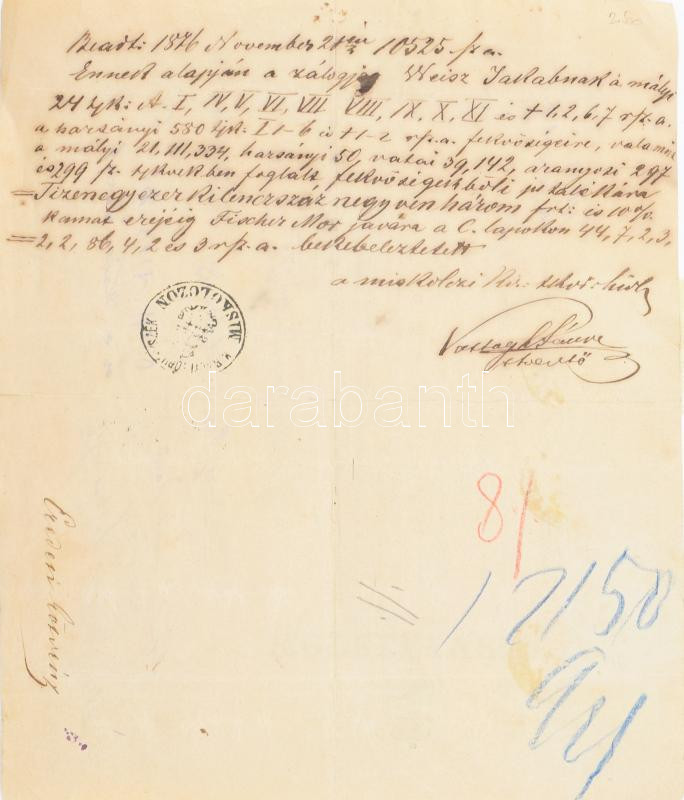 2.80
Beadt: 1876 November 21én 10525. sz. a.
Ennek alapján a zálogjog Weisz Jakabnak a mályi
24 tjk: A. I, IV, V, VI, VII VIII, IX, X, XI és + 1, 2, 6, 7 rsz. a.
a harsányi 580 tjk. I 1-6 és + 1-2 rsz. a. fekvőségeire, valamint
a mályi 21, 111, 334, harsányi 50, vatai 39, 142, aranyosi 297
és 299 sz. tjkvekben foglalt fekvőségekbőli jutalékára
= Tizenegyezer kilenczszáz negyven három frt: és 10%
kamat erejéig Fischer Mór javára a C. lapokon 44, 7, 2, 3,
= 2, 2, 86, 4, 2 és 3 rsz. a. bekebeleztetett
a miskolczi Kir:
MISKOLCZON
darabanth
Eredeti kötvény
8/
12150